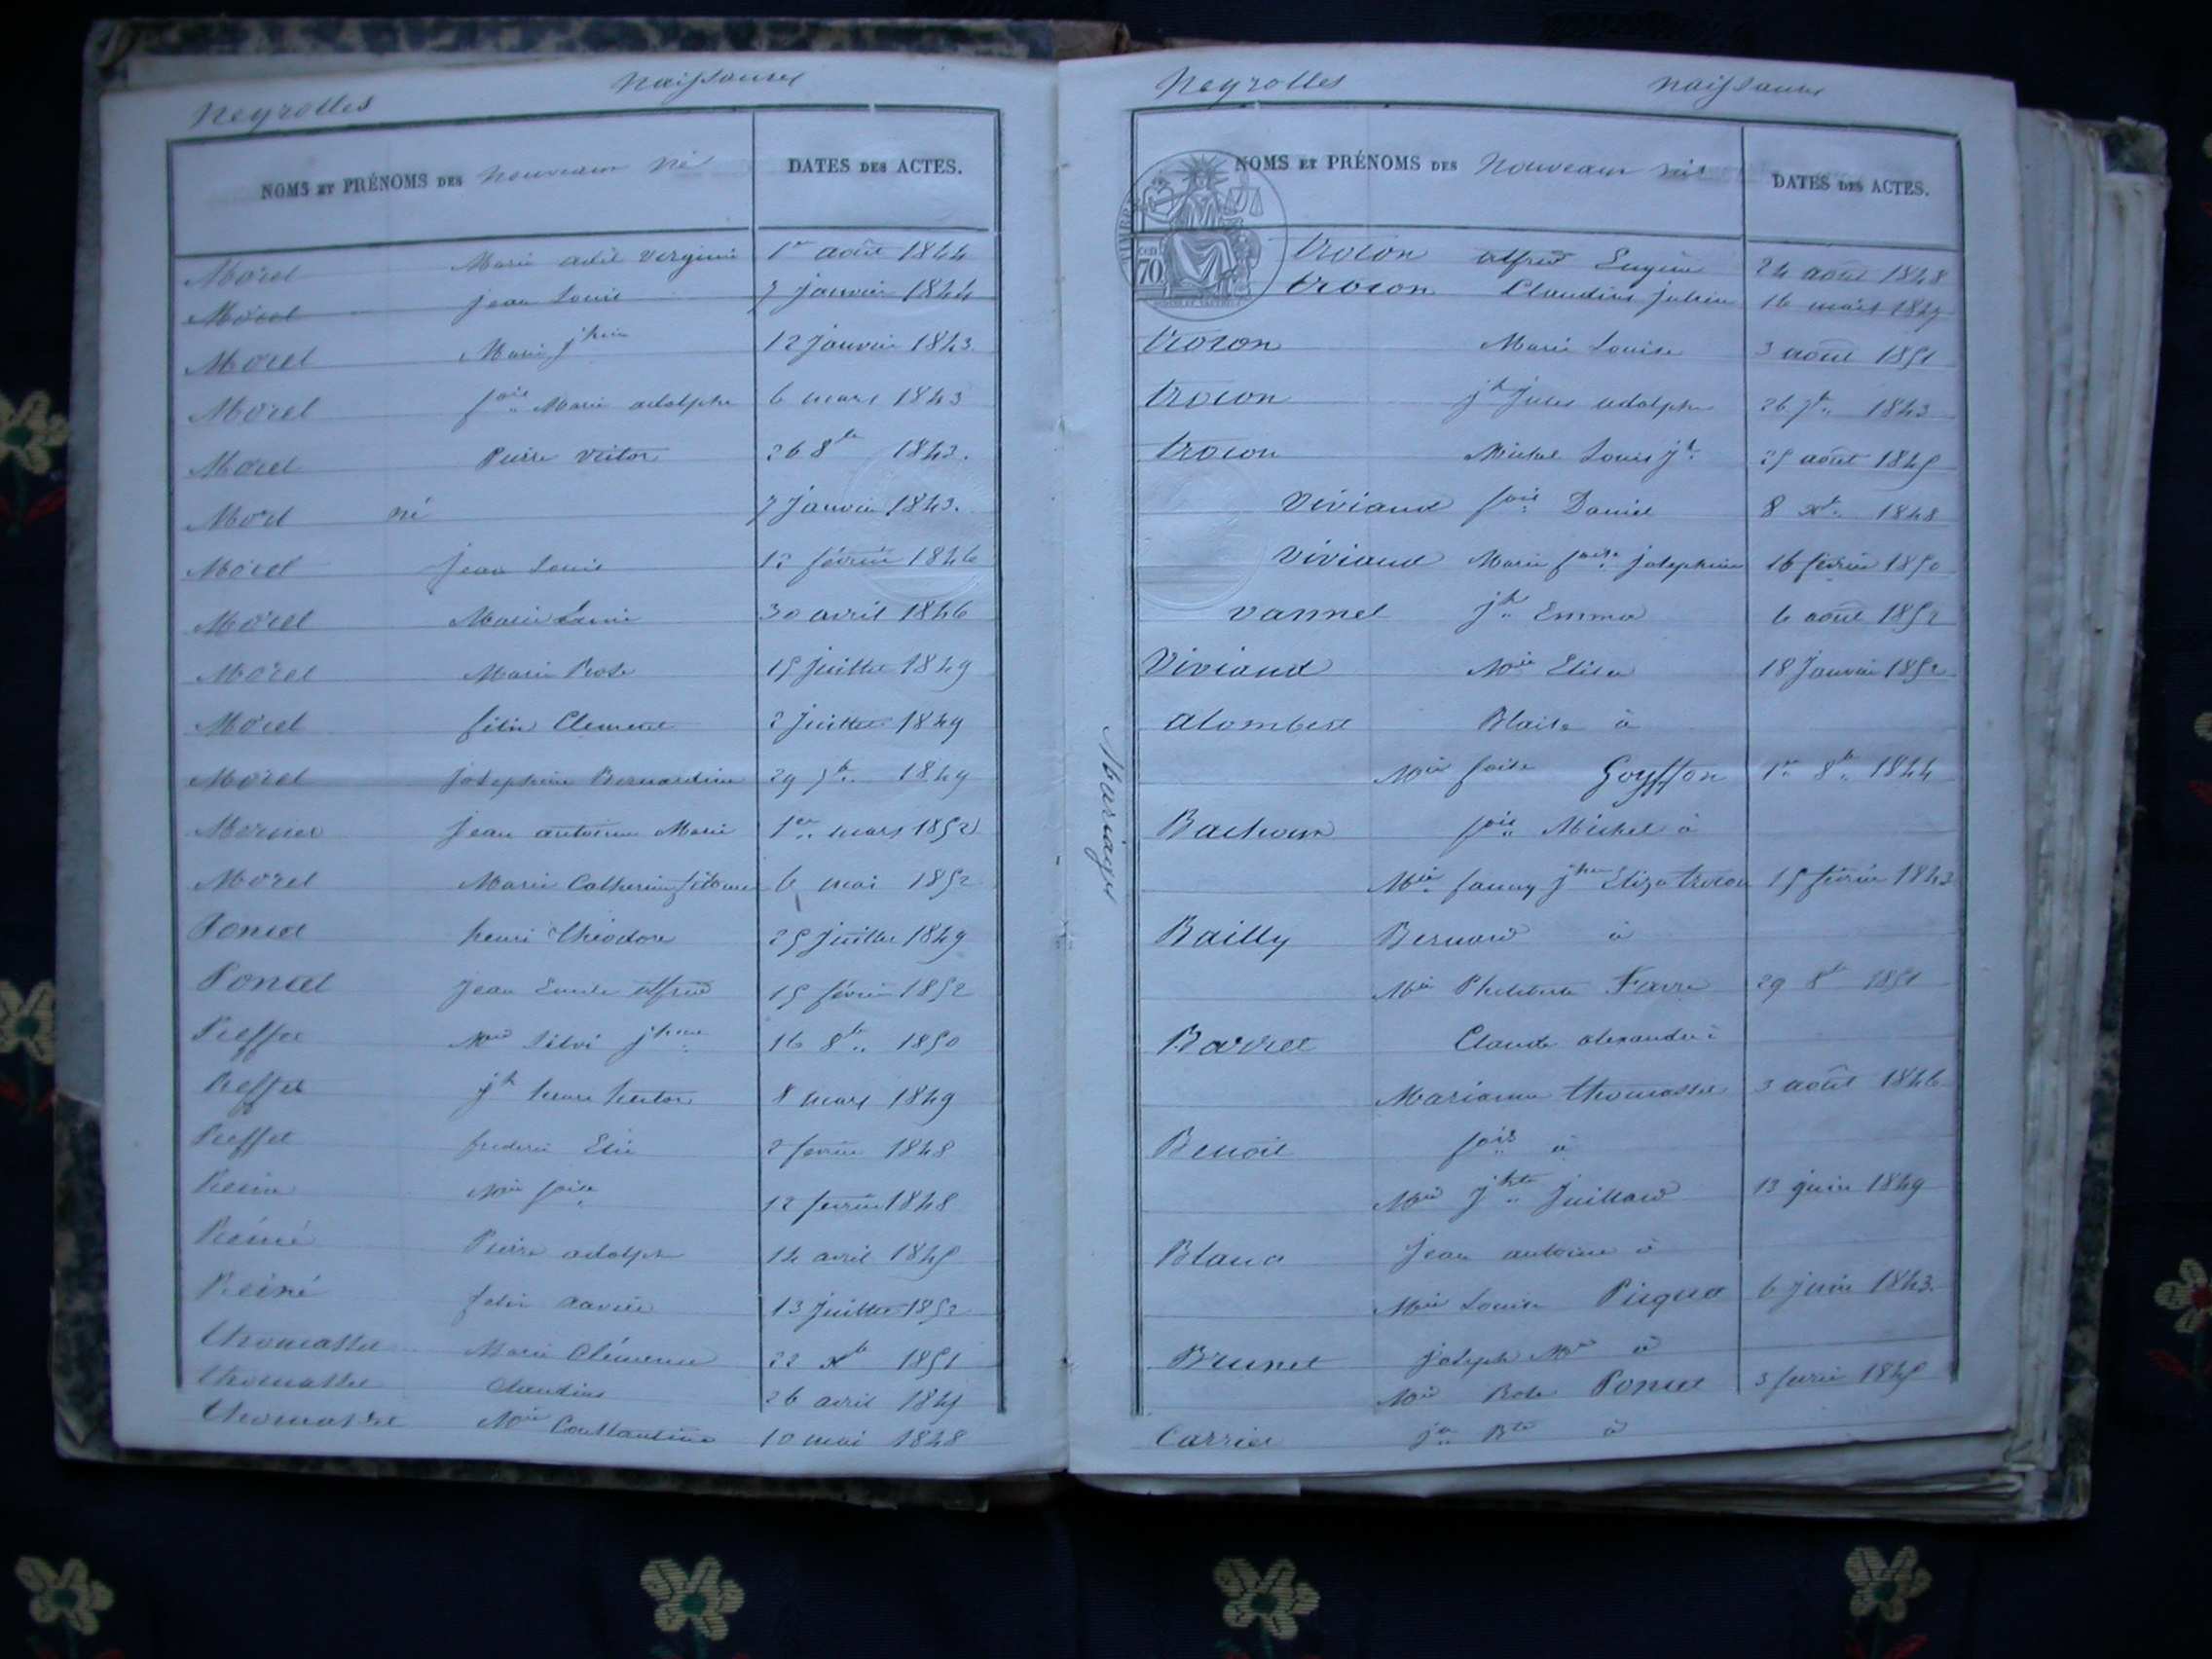 Neyrolles Naissances
NOMS ET PRÉNOMS DES nouveaux né DATES DES ACTES.
Morel Marie adèl Virginie 1er août 1844
Morel jean Louis 7 janvier 1844
Morel Marie jhine 12 janvier 1843
Morel fois Marie adolphe 6 mars 1843
Morel Pierre Victor 26 8bre 1843.
Morel né 7 Janvier 1843.
Morel jean Louis 12 février 1846
Morel Marie 30 avril 1846
Morel Marie Rose 15 juillet 1849
Morel félix Clement 2 juillet 1849
Morel Josephine Bernardine 29 1849
Jean antoine Marie 1er mars 1852
Morel Marie Catherine 6 mai 1852
Poncet henri théodore 25 juillet 1849
Poncet Jean Emile alfred 15 février 1852
Pieffet Mie Silvi jhine 16 8bre 1850
Pieffet jh henri hector 8 mars 1849
Pieffet frederic Elie 2 février 1848
Mie foise 12 février 1848
Pierre adolph 14 avril 1845
felix xavier 13 juillet 1852
thomasset Marie Clémence 22 xbre 1851
thomasset Claudius 26 avril 1845
thomasset Mie Constantine 10 mai 1848
Neyrolles Naissances
NOMS ET PRÉNOMS DES Nouveaux nés DATES DES ACTES.
trocon alfred Eugène 24 août 1848
trocon Claudius julien 16 mars 1849
trocon Marie Louise 3 août 1851
trocon jh jules adolphe 26 7bre 1843
trocon Michel Louis jh 25 août 1845
Viviand fois Daniel 8 xbre 1848
Viviand Marie foise josephine 16 février 1850
Vannel jh Emma 6 août 1852
Viviand Mie Elisa 18 Janvier 1852
Mariages
alombert Blaise à
Mie foise Goyffon 1er 8bre 1844
fois Michel à
Mie fanny jhine Eliza trocon 15 février 1843
Bailly Bernard à
Mie Philiberte Favre 29 8bre 1851
Barret Claude alexandre à
Marianne thomasset 3 août 1846
Benoit fois à
Mie jhte Juillard 13 juin 1849
Blanc Jean antoine à
Mie Louise Piquet 6 juin 1843.
Brunet joseph Mie à
Mie Rose Poncet 3 février 1845
Carrier jn Bte à